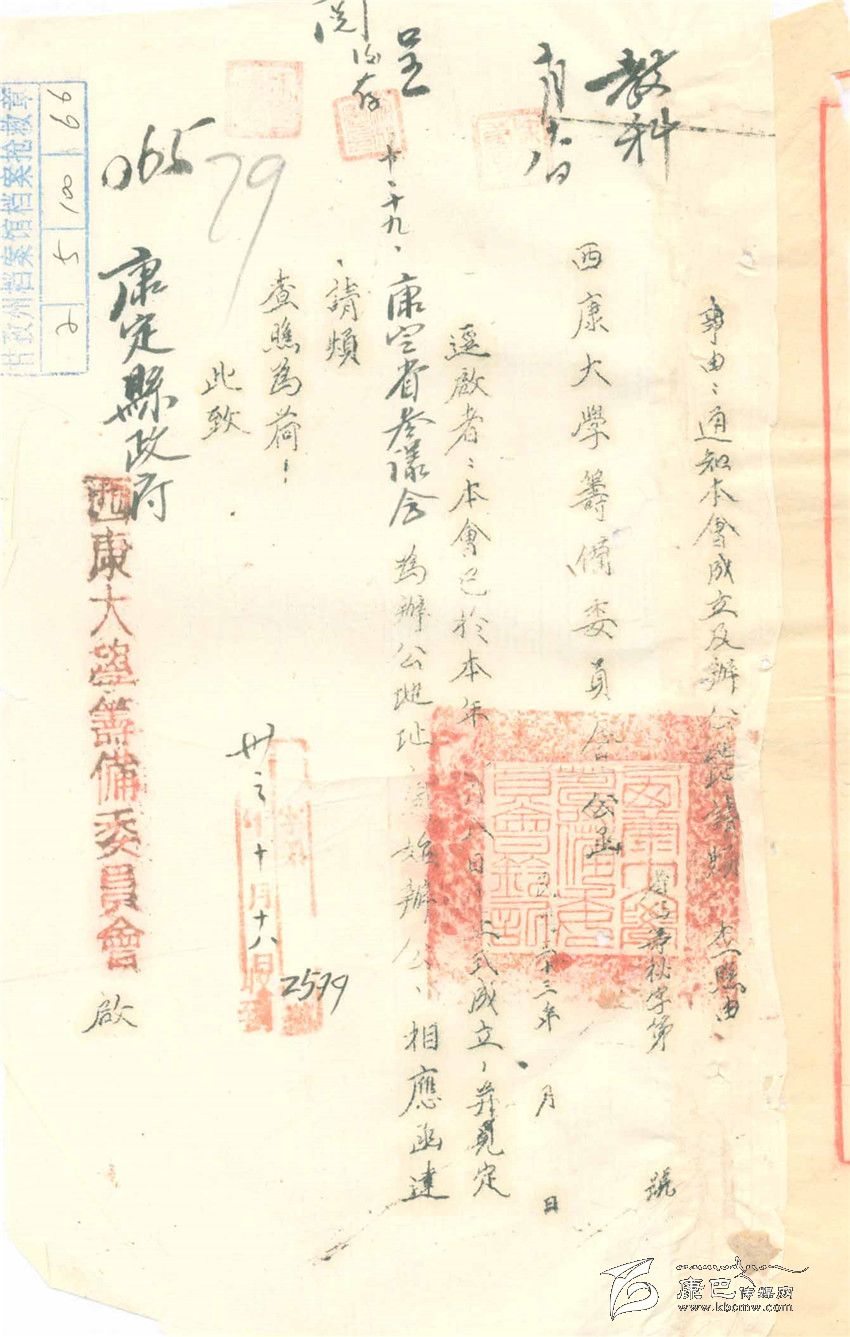 事由：通知本會成立及辦公地請煩查照由
秘字第 號
西康大學籌備委員會公函
三十三年 月 日
逕啟者：本會已於本年 八日 式成立，并覓定
康定省參議會為辦公地址 辦公，相應函達
請煩
查照為荷！
此致
康定縣政府
西康大學籌備委員會 啟
教科
閱後存
呈
十、十九、
卅三 十月十八
2599
065
79
甘孜州档案馆档案抢救章
2 5 100 66
康巴传媒网
www.kbcmw.com